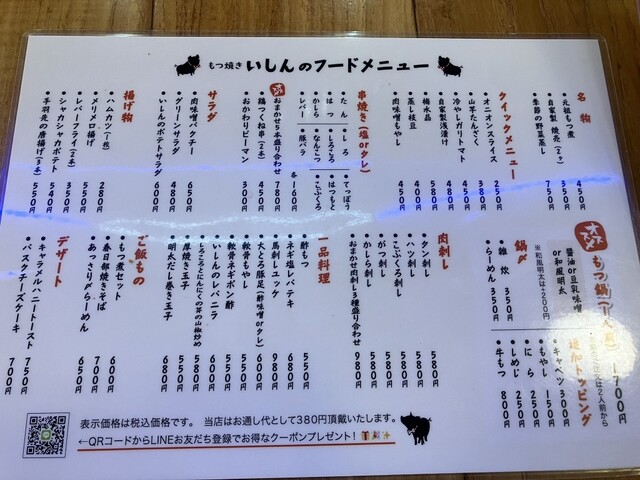 もつ焼き いしんのフードメニュー
名物
元祖もつ煮 450円
自家製 焼売(2ヶ) 400円
季節の野菜蒸し 750円
クイックメニュー
オニオンスライス 250円
山芋たんざく 380円
冷やしガリトマト 450円
自家製浅漬け 480円
梅水晶 580円
蒸し枝豆 400円
肉味噌もやし 450円
串焼き(塩orタレ)
たん しろ てっぽう
はつ しろころ はつもと
かしら なんこつ こぶくろ
レバー 豚バラ
各160円
おまかせ5本盛り合わせ 780円
鶏つくね串(2本) 450円
おかわりピーマン 300円
サラダ
肉味噌パクチー 650円
グリーンサラダ 480円
いしんのポテトサラダ 600円
揚げ物
ハムカツ(1枚) 280円
メリメロ揚げ 550円
レバーフライ(2本) 350円
シャカシャカポテト 540円
手羽先の唐揚げ(3本) 550円
オススメ
もつ鍋(1人前) 1700円
醤油or豆乳味噌
or和風明太
※和風明太は+200円
追加トッピング
キャベツ 300円
もやし 150円
にら 250円
しめじ 250円
牛もつ 800円
鍋〆
雑炊 350円
らーめん 350円
肉刺し
タン刺し 580円
ハツ刺し 580円
こぶくろ刺し 580円
がつ刺し 580円
かしら刺し 580円
おまかせ肉刺し3種盛り合わせ 980円
一品料理
酢もつ 550円
ネギ塩レバテキ 680円
馬刺しユッケ 980円
大とろ豚足(酢味噌orタレ) 600円
軟骨もやし 550円
軟骨ネギポン酢 550円
いしんのレバニラ 600円
しろころとにんにくの芽の山椒炒め 580円
厚焼き玉子 550円
明太だし巻き玉子 680円
ご飯もの
もつ煮セット 600円
春日部焼きそば 700円
あっさり〆らーめん 650円
デザート
キャラメルハニートースト 750円
バスクチーズケーキ 700円
表示価格は税込価格です。 当店はお通し代として380円頂戴いたします。
←QRコードからLINEお友だち登録でお得なクーポンプレゼント!